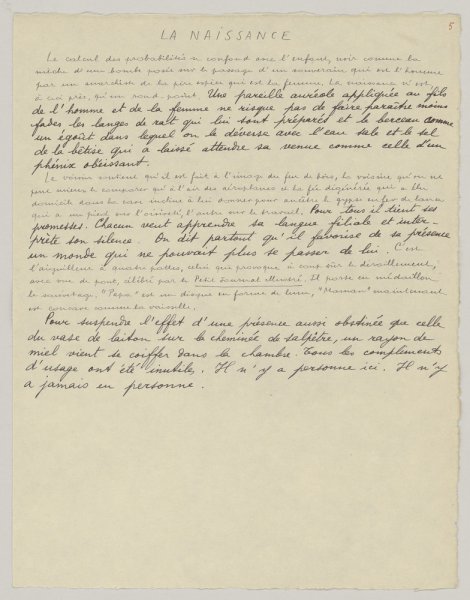 5
LA NAISSANCE
Le calcul des probabilités se confond avec l'enfant, noir comme la
mèche d'une bombe posée sur le passage d'un souverain qui est l'homme
par un anarchiste de la pire espèce qui est la femme. La naissance n'est
à ceci près, qu'un rond-point. Une pareille auréole appliquée au fils
de l'homme et de la femme ne risque pas de faire paraître moins
fades les langes de qui lui sont préparés et le berceau comme
un égoût dans lequel on le déverse avec l'eau sale et le sel
de la bêtise qui a laissé attendre sa venue comme celle d'un
phénix obéissant.
Le voisin soutient qu'il est fait à l'image du feu de bois, la voisine qu'on ne
peut mieux le comparer qu'à l'air des aéroplanes et la fée déguisée qui a élu
domicile dans la cave incline à lui donner pour ancêtre le gypse en fer de lance
qui a un pied sur l'oisiveté, l'autre sur le travail. Pour tous il tient ses
promesses. Chacun veut apprendre sa langue filiale et inter-
prète son silence. On dit partout qu'il favorise de sa présence
un monde qui ne pouvait plus se passer de lui. C'est
l'aiguilleur à quatre pattes, celui que provoque à coup sûr le déraillement,
avec vue de pont, élibri par le Petit Journal illustré. Il porte en médaillon
le sauvetage. "Papa" est un disque en forme de lune, "Maman" maintenant
est concave comme la vaisselle.
Pour suspendre l'effet d'une présence aussi obstinée que celle
du vase de laiton sur la cheminée de salpêtre, un rayon de
miel vient se coiffer dans la chambre. Tous les compléments
d'usage ont été inutiles. Il n'y a personne ici. Il n'y
a jamais eu personne.